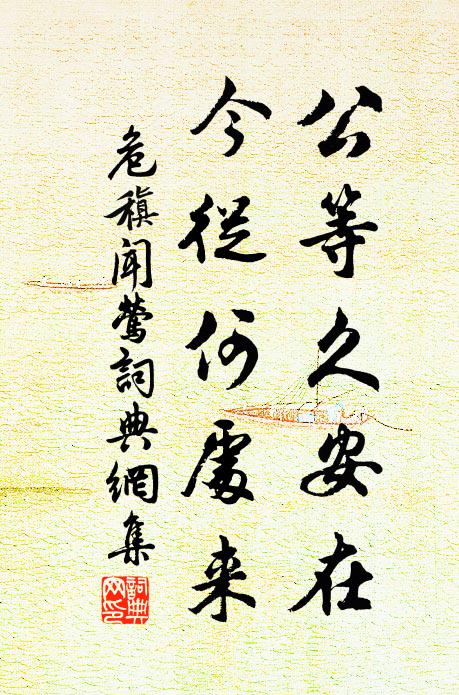 公等久安在
今從何處来
危稹聞鶯詞典網集
詞典
网印